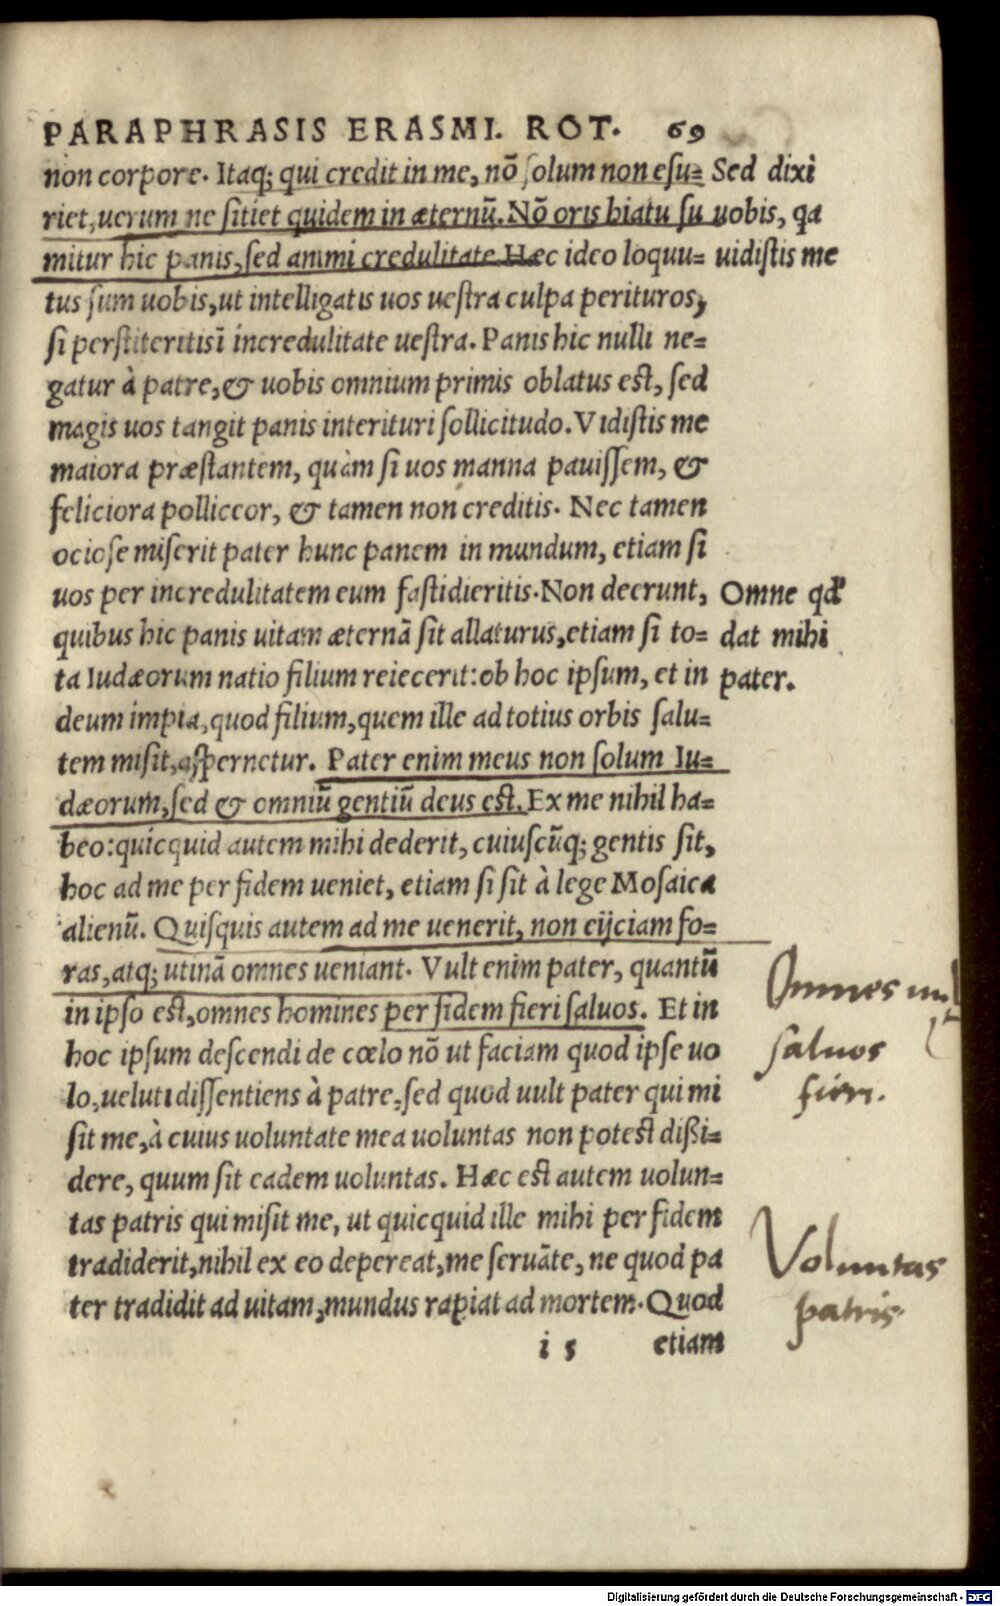 PARAPHRASIS ERASMI. ROT. 69
non corpore. Itaq; qui credit in me, nō solum non esu=
riet, uerum ne sitiet quidem in æternū. Nō oris hiatu su
mitur hic panis, sed animi credulitate. Hæc ideo loquu=
tus sum uobis, ut intelligatis uos uestra culpa perituros,
si perstiteritis ī incredulitate uestra. Panis hic nulli ne=
gatur à patre, & uobis omnium primis oblatus est, sed
magis uos tangit panis interituri sollicitudo. Vidistis me
maiora præstantem, quàm si uos manna pauissem, &
feliciora polliceor, & tamen non creditis. Nec tamen
ociose miserit pater hunc panem in mundum, etiam si
uos per incredulitatem eum fastidieritis. Non deerunt,
quibus hic panis uitam æternā sit allaturus, etiam si to=
ta Iudæorum natio filium reiecerit: ob hoc ipsum, et in
deum impia, quod filium, quem ille ad totius orbis salu=
tem misit, aspernetur. Pater enim meus non solum Iu=
dæorum, sed & omniū gentiū deus est. Ex me nihil ha=
beo: quicquid autem mihi dederit, cuiuscūq; gentis sit,
hoc ad me per fidem ueniet, etiam si sit à lege Mosaica
alienū. Quisquis autem ad me uenerit, non eijciam fo=
ras, atq; utinā omnes ueniant. Vult enim pater, quantū
in ipso est, omnes homines per fidem fieri saluos. Et in
hoc ipsum descendi de cœlo nō ut faciam quod ipse uo
lo, uelut dissentiens à patre, sed quod uult pater qui mi
sit me, à cuius uoluntate mea uoluntas non potest dißi=
dere, quum sit eadem uoluntas. Hæc est autem uolun=
tas patris qui misit me, ut quicquid ille mihi per fidem
tradiderit, nihil ex eo depereat, me seruāte, ne quod pa
ter tradidit ad uitam, mundus rapiat ad mortem. Quod
i 5 etiam
Sed dixi
uobis, qa
uidistis me
Omne qđ
dat mihi
pater.
Omnes uul
t
saluos
fieri.
Voluntas
patris.
Digitalisierung gefördert durch die Deutsche Forschungsgemeinschaft - DFG